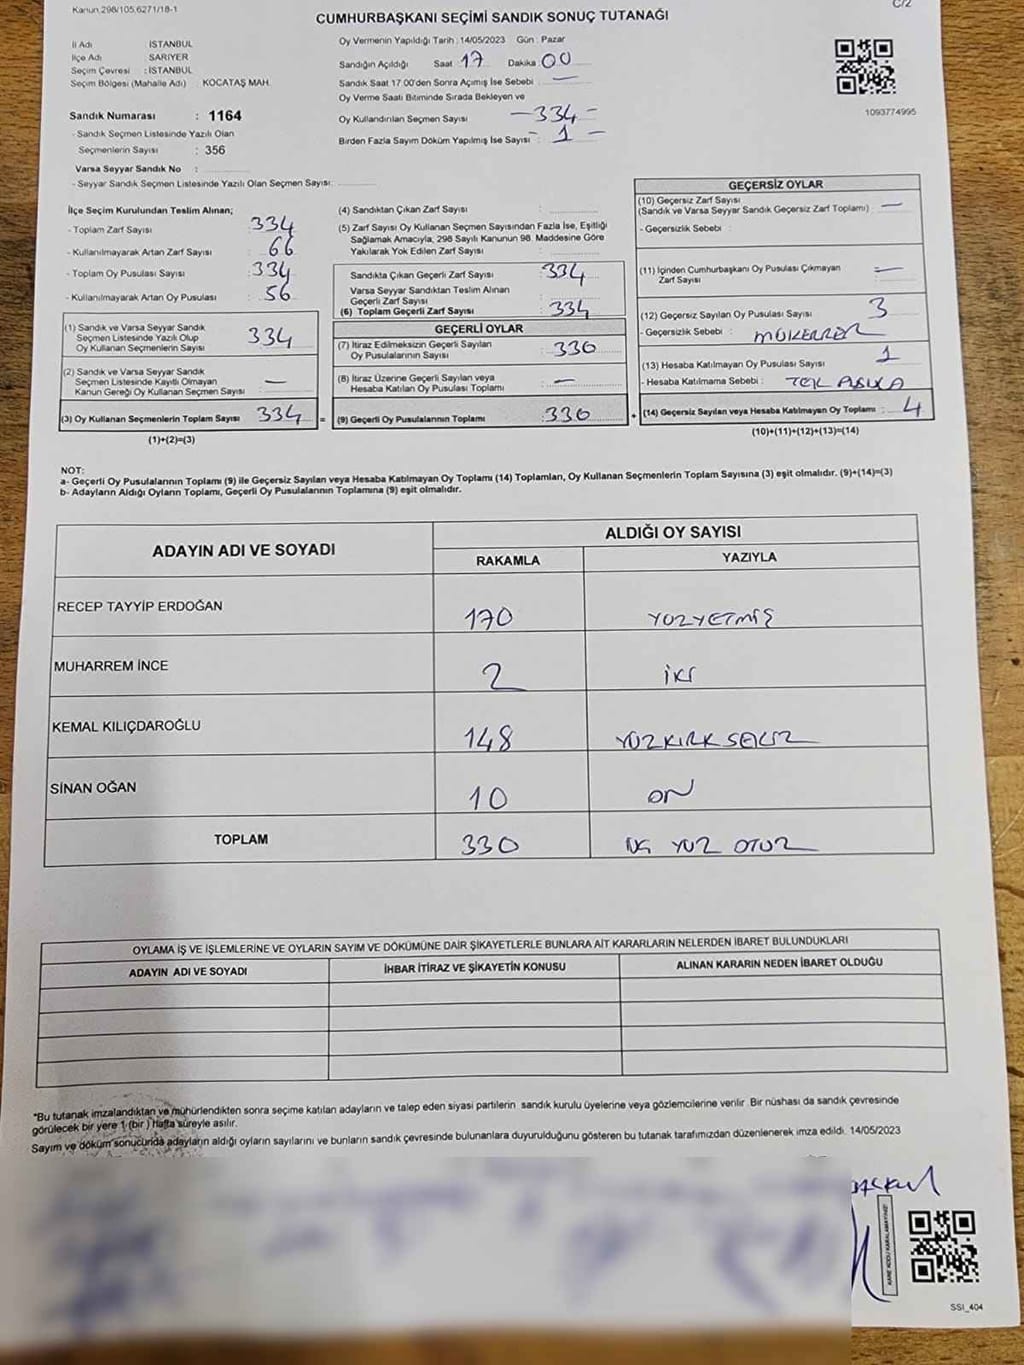 Kanun,298/105,6271/18-1
C/2
CUMHURBAŞKANI SEÇİMİ SANDIK SONUÇ TUTANAĞI
İl Adı İSTANBUL
İlçe Adı SARIYER
Seçim Çevresi : İSTANBUL
Seçim Bölgesi (Mahalle Adı) : KOCATAŞ MAH.
Sandık Numarası : 1164
- Sandık Seçmen Listesinde Yazılı Olan
Seçmenlerin Sayısı : 356
Varsa Seyyar Sandık No :
- Seyyar Sandık Seçmen Listesinde Yazılı Olan Seçmen Sayısı:
Oy Vermenin Yapıldığı Tarih : 14/05/2023 Gün : Pazar
Sandığın Açıldığı Saat 17 Dakika 00
Sandık Saat 17.00'den Sonra Açılmış İse Sebebi : —
Oy Verme Saati Bitiminde Sırada Bekleyen ve
Oy Kullandırılan Seçmen Sayısı -334-
Birden Fazla Sayım Döküm Yapılmış İse Sayısı : - 1 -
1093774995
İlçe Seçim Kurulundan Teslim Alınan;
- Toplam Zarf Sayısı : 334
- Kullanılmayarak Artan Zarf Sayısı : 66
- Toplam Oy Pusulası Sayısı : 334
- Kullanılmayarak Artan Oy Pusulası : 56
(1) Sandık ve Varsa Seyyar Sandık
Seçmen Listesinde Yazılı Olup
Oy Kullanan Seçmenlerin Sayısı 334
(2) Sandık ve Varsa Seyyar Sandık
Seçmen Listesinde Kayıtlı Olmayan
Kanun Gereği Oy Kullanan Seçmen Sayısı —
(3) Oy Kullanan Seçmenlerin Toplam Sayısı 334 =
(1)+(2)=(3)
(4) Sandıktan Çıkan Zarf Sayısı :
(5) Zarf Sayısı Oy Kullanan Seçmen Sayısından Fazla İse, Eşitliği
Sağlamak Amacıyla, 298 Sayılı Kanunun 98. Maddesine Göre
Yakılarak Yok Edilen Zarf Sayısı :
Sandıkta Çıkan Geçerli Zarf Sayısı : 334
Varsa Seyyar Sandıktan Teslim Alınan
Geçerli Zarf Sayısı :
(6) Toplam Geçerli Zarf Sayısı : 334
GEÇERLİ OYLAR
(7) İtiraz Edilmeksizin Geçerli Sayılan
Oy Pusulalarının Sayısı : 330
(8) İtiraz Üzerine Geçerli Sayılan veya
Hesaba Katılan Oy Pusulası Toplamı : —
(9) Geçerli Oy Pusulalarının Toplamı : 330 +
GEÇERSİZ OYLAR
(10) Geçersiz Zarf Sayısı
(Sandık ve Varsa Seyyar Sandık Geçersiz Zarf Toplamı) : —
- Geçersizlik Sebebi :
(11) İçinden Cumhurbaşkanı Oy Pusulası Çıkmayan
Zarf Sayısı : —
(12) Geçersiz Sayılan Oy Pusulası Sayısı : 3
- Geçersizlik Sebebi : MÜKERRER
(13) Hesaba Katılmayan Oy Pusulası Sayısı : 1
- Hesaba Katılmama Sebebi : TEK PUSULA
(14) Geçersiz Sayılan veya Hesaba Katılmayan Oy Toplamı : 4
(10)+(11)+(12)+(13)=(14)
NOT:
a- Geçerli Oy Pusulalarının Toplamı (9) ile Geçersiz Sayılan veya Hesaba Katılmayan Oy Toplamı (14) Toplamları, Oy Kullanan Seçmenlerin Toplam Sayısına (3) eşit olmalıdır. (9)+(14)=(3)
b- Adayların Aldığı Oyların Toplamı, Geçerli Oy Pusulalarının Toplamına (9) eşit olmalıdır.
ADAYIN ADI VE SOYADI ALDIĞI OY SAYISI
RAKAMLA YAZIYLA
RECEP TAYYİP ERDOĞAN 170 YÜZYETMİŞ
MUHARREM İNCE 2 İKİ
KEMAL KILIÇDAROĞLU 148 YÜZKIRKSEKİZ
SİNAN OĞAN 10 ON
TOPLAM 330 ÜÇ YÜZ OTUZ
OYLAMA İŞ VE İŞLEMLERİNE VE OYLARIN SAYIM VE DÖKÜMÜNE DAİR ŞİKAYETLERLE BUNLARA AİT KARARLARIN NELERDEN İBARET BULUNDUKLARI
ADAYIN ADI VE SOYADI İHBAR İTİRAZ VE ŞİKAYETİN KONUSU ALINAN KARARIN NEDEN İBARET OLDUĞU
"Bu tutanak imzalandıktan ve mühürlendikten sonra seçime katılan adayların ve talep eden siyasi partilerin sandık kurulu üyelerine veya gözlemcilerine verilir. Bir nüshası da sandık çevresinde
görülecek bir yere 1 (bir ) hafta süreyle asılır.
Sayım ve döküm sonucunda adayların aldığı oyların sayılarını ve bunların sandık çevresinde bulunanlara duyurulduğunu gösteren bu tutanak tarafımızdan düzenlenerek imza edildi. 14/05/2023
KARE KODU KARALAMAYINIZ!
SSI_404